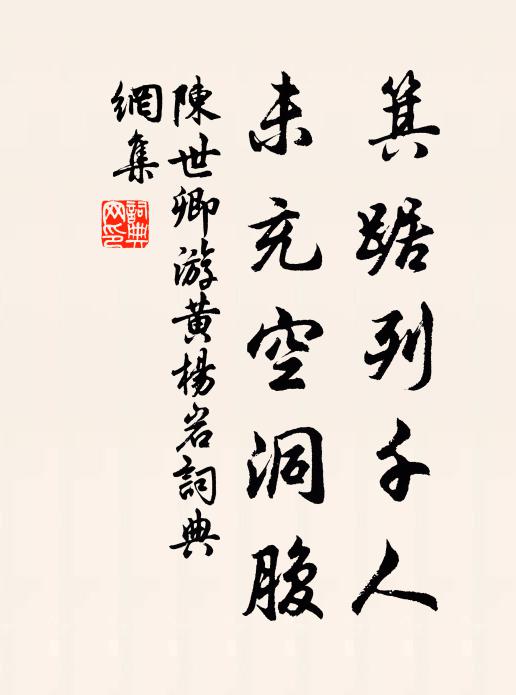 箕踞列千人
未充空洞腹
陳世卿游黄楊岩詞典
網集
詞典
网印